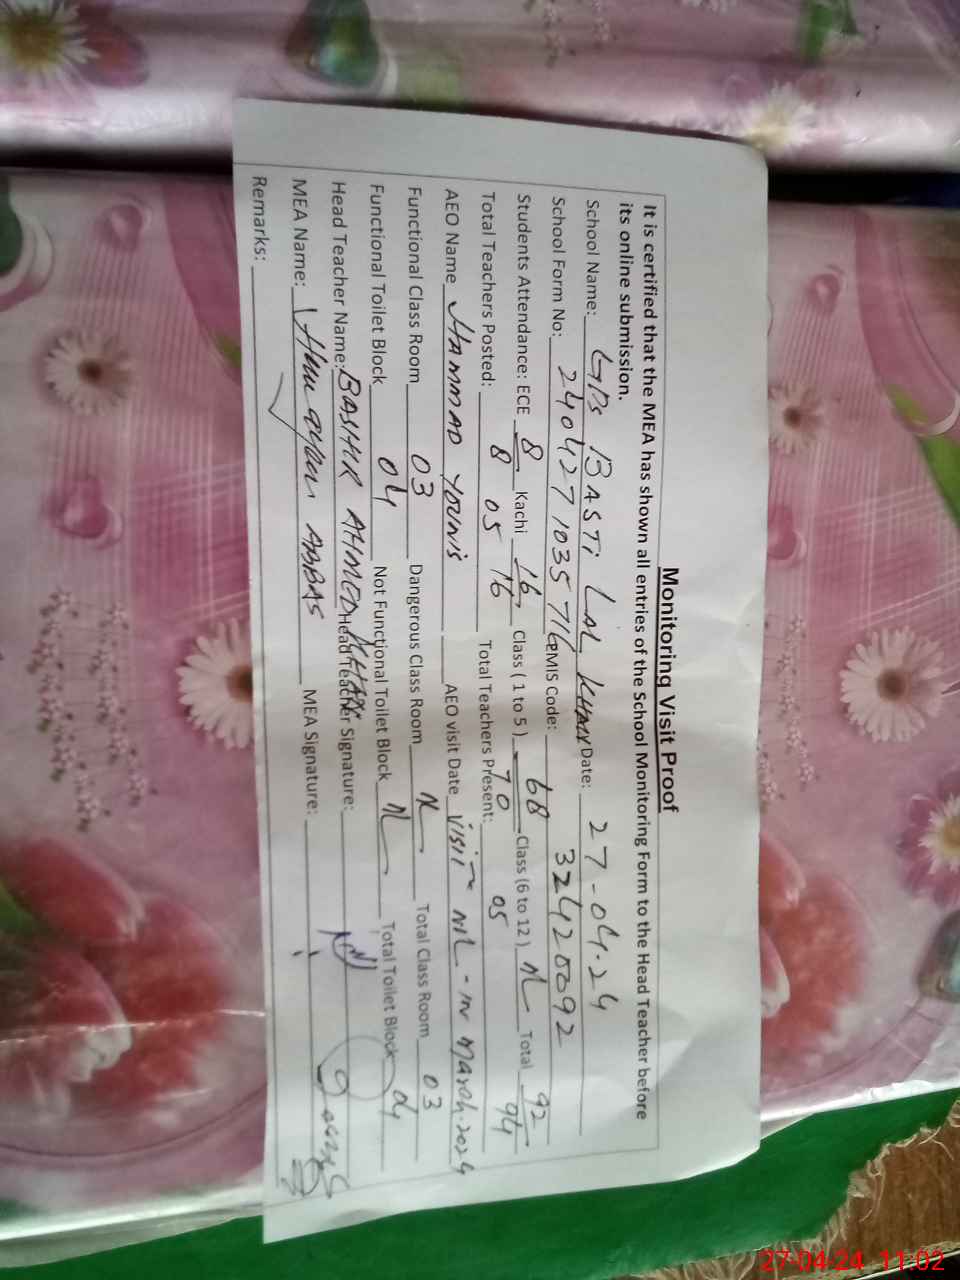 Monitoring Visit Proof
It is certified that the MEA has shown all entries of the School Monitoring Form to the Head Teacher before
its online submission.
School Name: GPS BASTi LAL KHAN Date: 27-04-24
School Form No: 240427103571 EMIS Code: 32420092
Students Attendance: ECE 8 Kachi 16 Class ( 1 to 5 ) 68 Class (6 to 12 ) NL Total 92
8 16 70 94
Total Teachers Posted: 05 Total Teachers Present: 05
AEO Name HAMMAD YOUNIS AEO visit Date VISIT NIL - IN MARCH.2024
Functional Class Room 03 Dangerous Class Room Total Class Room 03
Functional Toilet Block 04 Not Functional Toilet Block NL Total Toilet Block 04
Head Teacher Name: BASHIR AHMED KHAN Head Teacher Signature:
MEA Name: Humayun ABBAS MEA Signature:
Remarks:
27-04-24 11:02